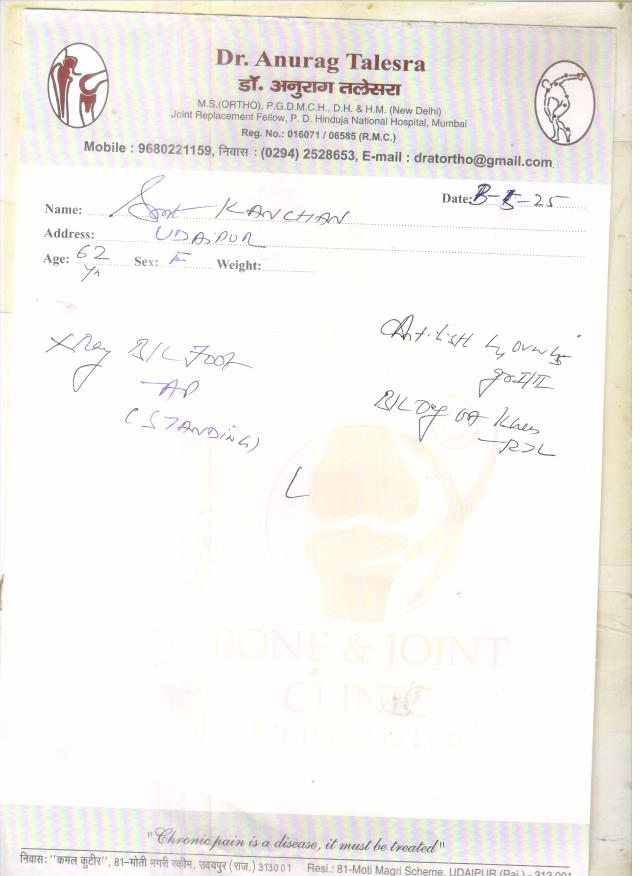 Dr. Anurag Talesra
डॉ. अनुराग तलेसरा
M.S.(ORTHO), P.G.D.M.C.H., D.H. & H.M. (New Delhi)
Joint Replacement Fellow, P. D. Hinduja National Hospital, Mumbai
Reg. No.: 016071 / 06585 (R.M.C.)
Mobile : 9680221159, निवास : (0294) 2528653, E-mail : dratortho@gmail.com
Date: -25
Name: Smt KANCHAN
Address: UDAIPUR
Age: 62 Yr Sex: F Weight:
XRay B/L Foot
AP
(STANDING)
gr II/III
B/L OA Knees
R>L
BONE & JOINT
CLINIC
Mobility is Life
"Chronic pain is a disease, it must be treated"
निवास: "कमल कुटीर", 81-मोती मगरी स्कीम, उदयपुर (राज.) 313001 Resi.: 81-Moti Magri Scheme, UDAIPUR (Raj.) - 313 001